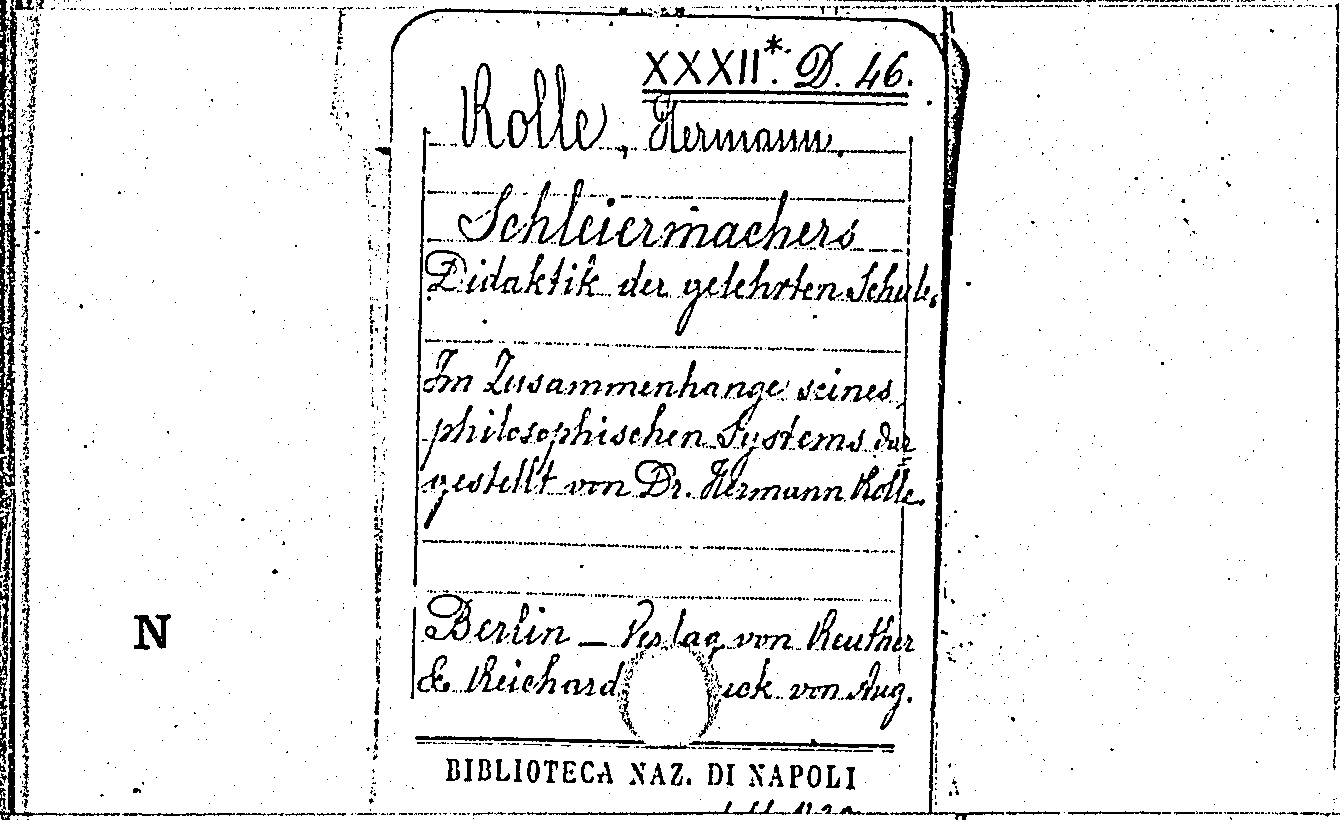 XXXII*. D. 46.
Rolle, Hermann.
Schleiermachers
Didaktik der gelehrten Schule.
Im Zusammenhange seines
philosophischen Systems dar
gestellt von Dr. Hermann Rolle.
Berlin – Verlag von Reuther
& Reichard von Aug.
N
BIBLIOTECA NAZ. DI NAPOLI